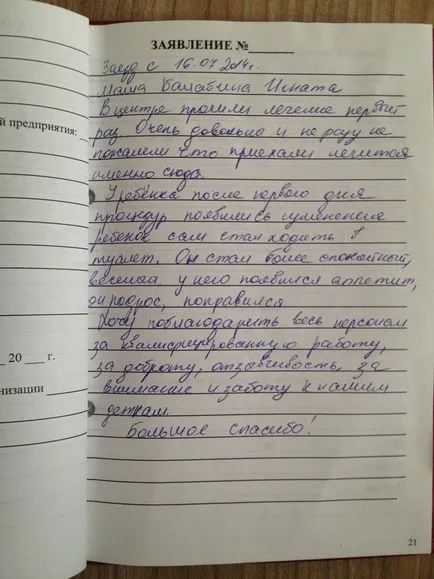 ЗАЯВЛЕНИЕ №
Заезд с 16.07.2014г.
Мама Балабина Игната
В центре прошли лечение первый
раз. Очень довольно и не разу не
пожалели что приехали лечится
именно сюда.
й предприятия:
У ребёнка после первого дня
процедур появились изменения
ребёнок сам стал ходить в
туалет. Он стал более спокойный,
веселый, у него появился аппетит,
он подрос, поправился.
Хочу поблагодарить весь персонал
за квалифицированную работу,
20 г.
за доброту, отзывчивость, за
низации
внимание и заботу к нашим
деткам.
Большое спасибо!
21